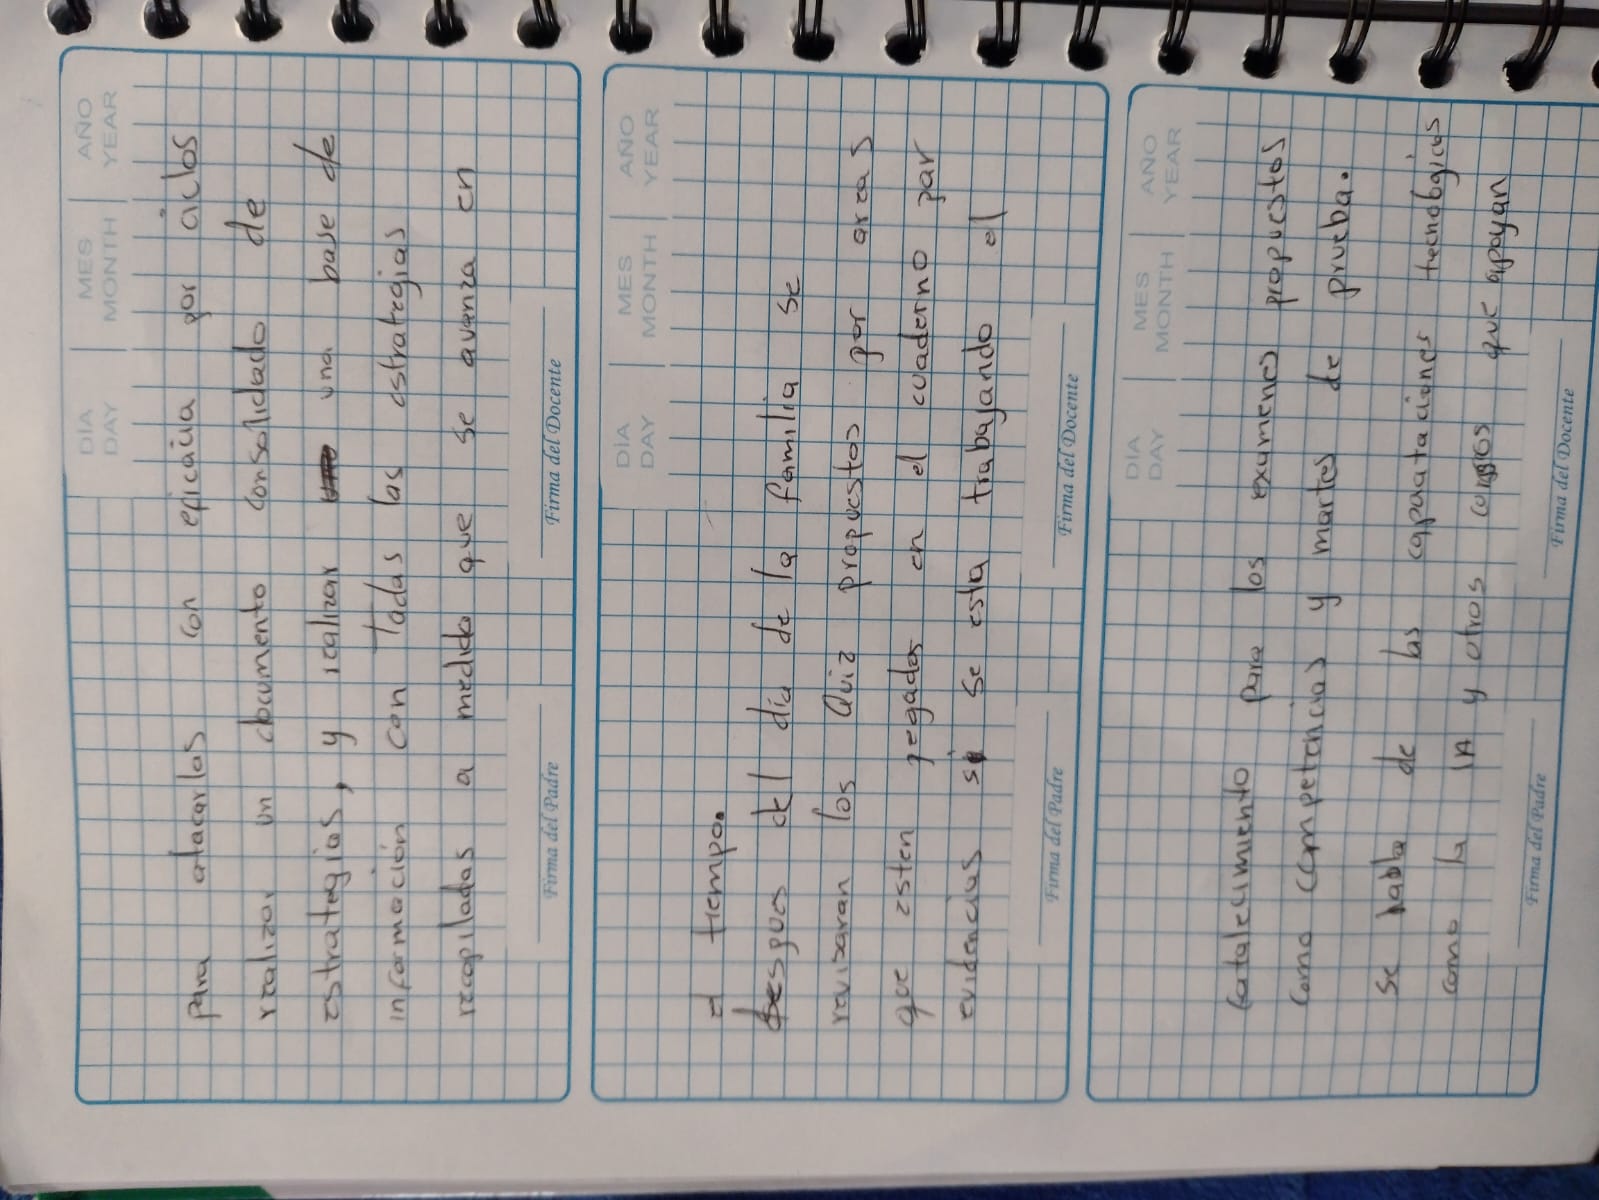 DÍA MES AÑO
DAY MONTH YEAR
para atacarlos con eficacia por ciclos
realizar un documento consolidado de
estrategias, y realizar una base de
información con todas las estrategias
recopiladas a medida que se avanza en
Firma del Padre Firma del Docente
DÍA MES AÑO
DAY MONTH YEAR
el tiempo.
Despues del día de la familia se
revisaran los Quiz propuestos por areas
que esten pegados en el cuaderno par
evidencias si se esta trabajando el
Firma del Padre Firma del Docente
DÍA MES AÑO
DAY MONTH YEAR
fatalecimiento para los examenes propuestos
como competencias y martes de prueba.
Se habla de las capacitaciones tecnologicas
como la IA y otros cursos que apoyan
Firma del Padre Firma del Docente